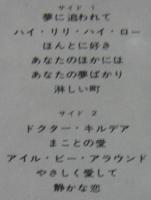 サイド 1
夢に追われて
ハイ・リリ・ハイ・ロー
ほんとに好き
あなたのほかには
あなたの夢ばかり
淋しい町
サイド 2
ドクター・キルデア
まことの愛
アイル・ビー・アラウンド
やさしく愛して
静かな恋